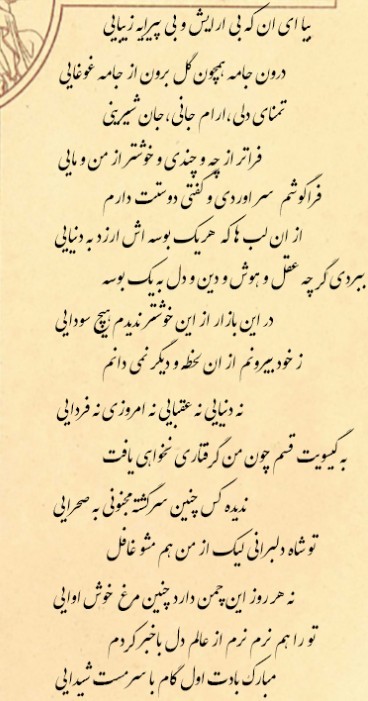 بیا ای ان که بی ارایش و بی پیرایه زیبایی
درون جامه همچون گل برون از جامه غوغایی
تمنای دلی،ارام جانی،جان شیرینی
فراتر از چه و چندی و خوشتر از من و مایی
فراگوشم سر اوردی و گفتی دوستت دارم
از ان لب ها که هر یک بوسه اش ارزد به دنیایی
ببردی گر چه عقل و هوش و دین و دل به یک بوسه
در این بازار از این خوشتر ندیدم هیچ سودایی
ز خود بیرونم از ان لحظه و دیگر نمی دانم
نه دنیایی نه عقبایی نه امروزی نه فردایی
به گیسویت قسم چون من گرفتاری نخواهی یافت
ندیده کس چنین سرگشته مجنونی به صحرایی
تو شاه دلبرانی لیک از من هم مشو غافل
نه هر روز این چمن دارد چنین مرغ خوش اوایی
تو را هم نرم نرم از عالم دل باخبر کردم
مبارک بادت اول گام با سرمست شیدایی